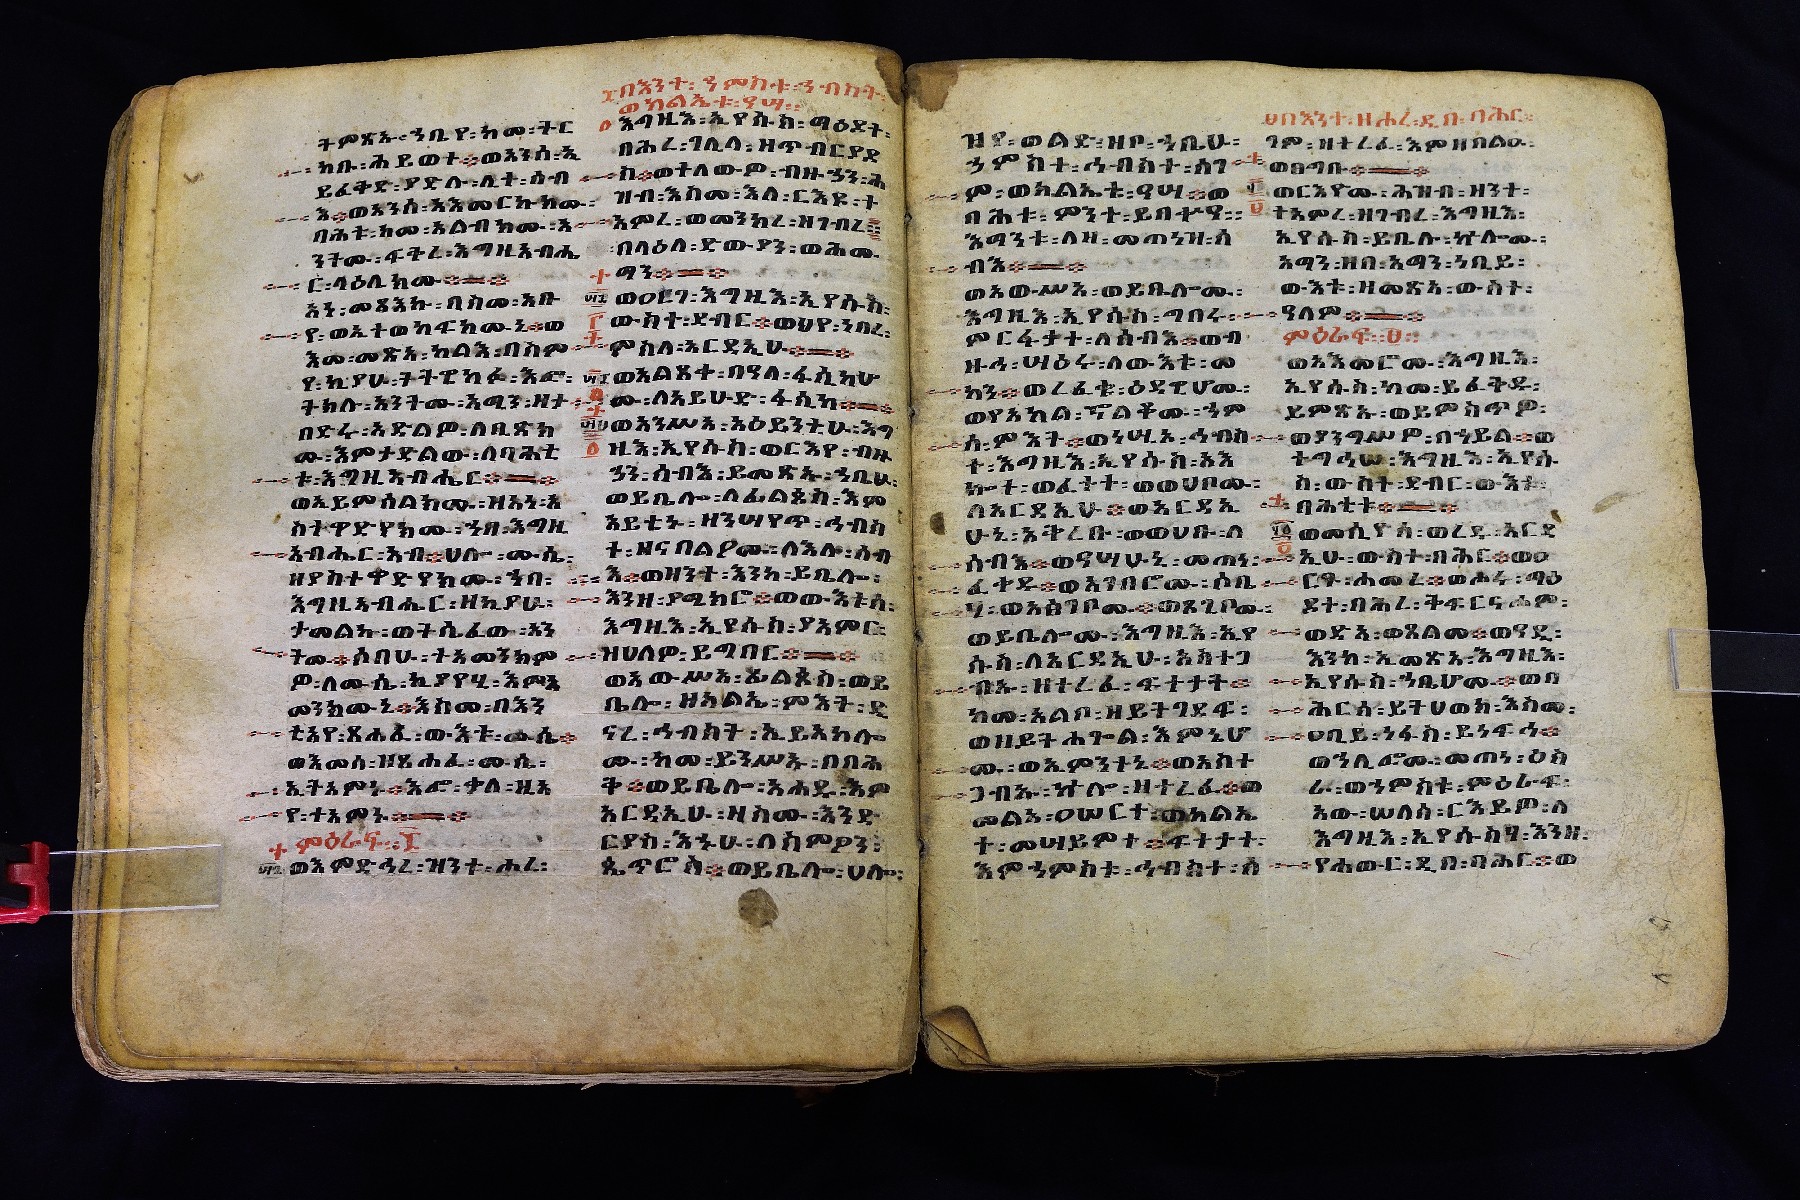 ትምጽኡ፡ ኀቤየ፡ ከመ፡ ትር
ከቡ፡ ሕይወተ፨ ወአንሰ፡ ኢ
ይፈቅድ፡ ያድሉ፡ ሊተ፡ ሰብ
እ፨ ወአንሰ፡ አአመርኩክሙ፡
በሕቱ፡ ከመ፡ አልብክሙ፡ አ
ንትሙ፡ ፍቅረ፡ እግዚአብሔ
ር፡ ላዕሌክሙ፨
አነ፡ መጻእኩ፡ በስመ፡ አቡ
የ፡ ወኢተወከፍክሙኒ፨ ወ
እመ፡ መጽአ፡ ካልእ፡ በስም
የ፡ ኪያሁ፡ ትትዌከፉ፡ እፎ፡
ትክሉ፡ አንትሙ፡ አሚን፡ ዘተ
በድሩ፡ አድልዎ፡ ለቢጽክ
ሙ፡ እምታድልው፡ ለባሕቲ
ቱ፡ እግዚአብሔር፨
ወአይምሰልክሙ፡ ዘአነ፡ አ
ስተዋድየክሙ፡ ኀበ፡ እግዚ
አብሔር፡ አብ፨ ሀሎ፡ ሙሴ፡
ዘያስተዋድየክሙ፡ ኀበ፡
እግዚአብሔር፡ ዘኪያሁ፡
ታመልኩ፡ ወትሴፈው፡ አን
ትሙ፨ ሶበሁ፡ ተአመንክም
ዎ፡ ለሙሴ፡ ኪያየሂ፡ እምአ
መንክሙኒ፨ እስመ፡ በእን
ቲአየ፡ ጸሐፈ፡ ውእቱ፡ ሙሴ፨
ወእመሰ፡ ዘጸሐፈ፡ ሙሴ፡
ኢትአምኑ፨ እፎ፡ ቃለ፡ ዚአ
የ፡ ተአምኑ፨
ምዕራፍ፡ ፲
ወእምድኅረ፡ ዝንቱ፡ ሐረ፡
፲በእንተ፡ ኀምስቱ፡ ኅብስት፡
ወክልኤቱ፡ ዓሣ፨
እግዚእ፡ ኢየሱስ፡ ማዕዶተ፡
ባሕረ፡ ገሊላ፡ ዘጥብርያዶ
ስ፨ ወተለውዎ፡ ብዙኃን፡ ሕ
ዝብ፡ እስመ፡ እለ፡ ርእዩ፡ ተ
አምረ፡ ወመንክረ፡ ዘገብረ፨
በላዕለ፡ ድውያን፡ ወሕሙ
ማን፨
ወዐርገ፡ እግዚእ፡ ኢየሱስ፡
ውስተ፡ ደብር፨ ወህየ፡ ነበረ፡
ምስለ፡ አርዳኢሁ፨
ወአልጸቀ፡ በዓለ፡ ፋሲካሆ
ሙ፡ ለአይሁድ፡ ፋሲካ፨
ወአንሥአ፡ አዕይንቲሁ፡ እግ
ዚእ፡ ኢየሱስ፡ ወርእየ፡ ብዙ
ኃን፡ ሰብእ፡ ይመጽኡ፡ ኀቤሁ፡
ወይቤሎ፡ ለፊልጶስ፡ እም
አይቴኑ፡ ዘንሣየጥ፡ ኅብስ
ተ፡ ዘናበልዖሙ፡ ለእሉ፡ ሰብ
እ፨ ወዘንተ፡ እንከ፡ ይቤሎ፡
እንዘ፡ ያሜክሮ፨ ወውእቱሰ፡
እግዚእ፡ ኢየሱስ፡ ያአምር፡
ዘሀለዎ፡ ይግበር፨
ወአውሥአ፡ ፊልጶስ፡ ወይ
ቤሎ፡ ዘክልኤ፡ ምእት፡ ዲ
ናረ፡ ኅብስት፡ ኢይአክሎ
ሙ፡ ከመ፡ ይንሥኡ፡ በበሕ
ቅ፨ ወይቤሎ፡ አሐዱ፡ እም
አርዳኢሁ፡ ዘስሙ፡ እንድ
ርያስ፡ እኁሁ፡ ለስምዖን፡
ጴጥሮስ፨ ወይቤሎ፡ ሀሎ፡
ዝየ፡ ወልድ፡ ዘቦ፡ ኀቤሁ፡
ኀምስተ፡ ኅብስተ፡ ሰገ
ም፡ ወክልኤቱ፡ ዓሣ፨ ወ
ባሕቱ፡ ምንተ፡ ይበቍዓ፡
እማንቱ፡ ለዘ፡ መጠነዝ፡ ሰ
ብእ፨
ወአውሥአ፡ ወይቤሎሙ፡
እግዚእ፡ ኢየሱስ፡ ግበሩ፡
ምርፋቃተ፡ ለሰብእ፨ ወብ
ዙኅ፡ ሣዕሩ፡ ለውእቱ፡ መ
ካን፨ ወረፈቁ፡ ዕደዊሆሙ፡
ወየአክል፡ ኆልቆሙ፡ ኀም
ሳ፡ ምእት፨ ወነሢኦ፡ ኅብስ
ተ፡ እግዚእ፡ ኢየሱስ፡ አእ
ኰተ፡ ወፈተተ፡ ወወሀቦሙ፡
ለአርዳኢሁ፨ ወአርዳኢ
ሁኒ፡ አቅረቡ፡ ወወሀቡ፡ ለ
ሰብእ፨ ወዓሣሁኒ፡ መጠነ፡
ፈቀዱ፨ ወአንበሮሙ፡ ሰቢ
ሃ፡ ወአስገቦሙ፨ ወጸጊቦሙ፡
ወይቤሎሙ፡ እግዚእ፡ ኢየ
ሱስ፡ ለአርዳኢሁ፡ አስተጋ
ብኡ፡ ዘተረፈ፡ ፍተታት፨
ከመ፡ አልቦ፡ ዘይትገደፍ፡
ወዘይትሐጐል፡ እምኔሆ
ሙ፡ ወኢምንተኒ፨ ወአስተ
ጋብኡ፡ ኵሎ፡ ዘተረፈ፨ ወ
መልአ፡ ዐሠርተ፡ ወክልኤ
ተ፡ መሣይምተ፨ ፍተታተ፡
እምኀምስቱ፡ ኅብስተ፡ ሰ
ሀበእንተ፡ ዘሐረ፡ ዲበ፡ ባሕር፡
ገም፡ ዘተረፈ፡ እምዘበልዑ፡
ወፀግቡ፨
ወርእዮሙ፡ ሕዝብ፡ ዘንተ፡
ተአምረ፡ ዘገብረ፡ እግዚእ፡
ኢየሱስ፡ ይቤሉ፡ ኵሎሙ፡
አማን፡ ዘበ፡ አማን፡ ነቢይ፡
ውእቱ፡ ዘመጽአ፡ ውስተ፡
ዓለም፨
ምዕራፍ፡ ፡፡
ወአእመሮሙ፡ እግዚእ፡
ኢየሱስ፡ ከመ፡ ይፈቅዱ፡
ይምጽኡ፡ ወይምስጥዎ፡
ወያንግሥዎ፡ በኀይል፨ ወ
ተግኅሠ፡ እግዚእ፡ ኢየሱ
ስ፡ ውስተ፡ ደብር፡ ውእቱ፡
ባሕቲቱ፨
ወመስዮ፡ ወረዱ፡ አርዳ
ኢሁ፡ ውስተ፡ ባሕር፨ ወዐ
ርጉ፡ ሐመረ፨ ወሖሩ፡ ማዕ
ዶተ፡ ባሕረ፡ ቅፍርናሖም፡
ወድአ፡ ወጸልመ፨ ወዓዲ፡
እንከ፡ ኢመጽአ፡ እግዚእ፡
ኢየሱስ፡ ኀቤሆሙ፨ ወባ
ሕርሰ፡ ይትሀወክ፡ እስመ፡
ዐቢይ፡ ነፋስ፡ ይነፍኅ፨
ወንሒቆሙ፡ መጠነ፡ ዕስ
ራ፡ ወኀምስቱ፡ ምዕራፍ፡
አው፡ ሠላሳ፡ ርእይዎ፡ ለ
እግዚእ፡ ኢየሱስሃ፡ እንዘ፡
የሐውር፡ ዲበ፡ ባሕር፨ ወ